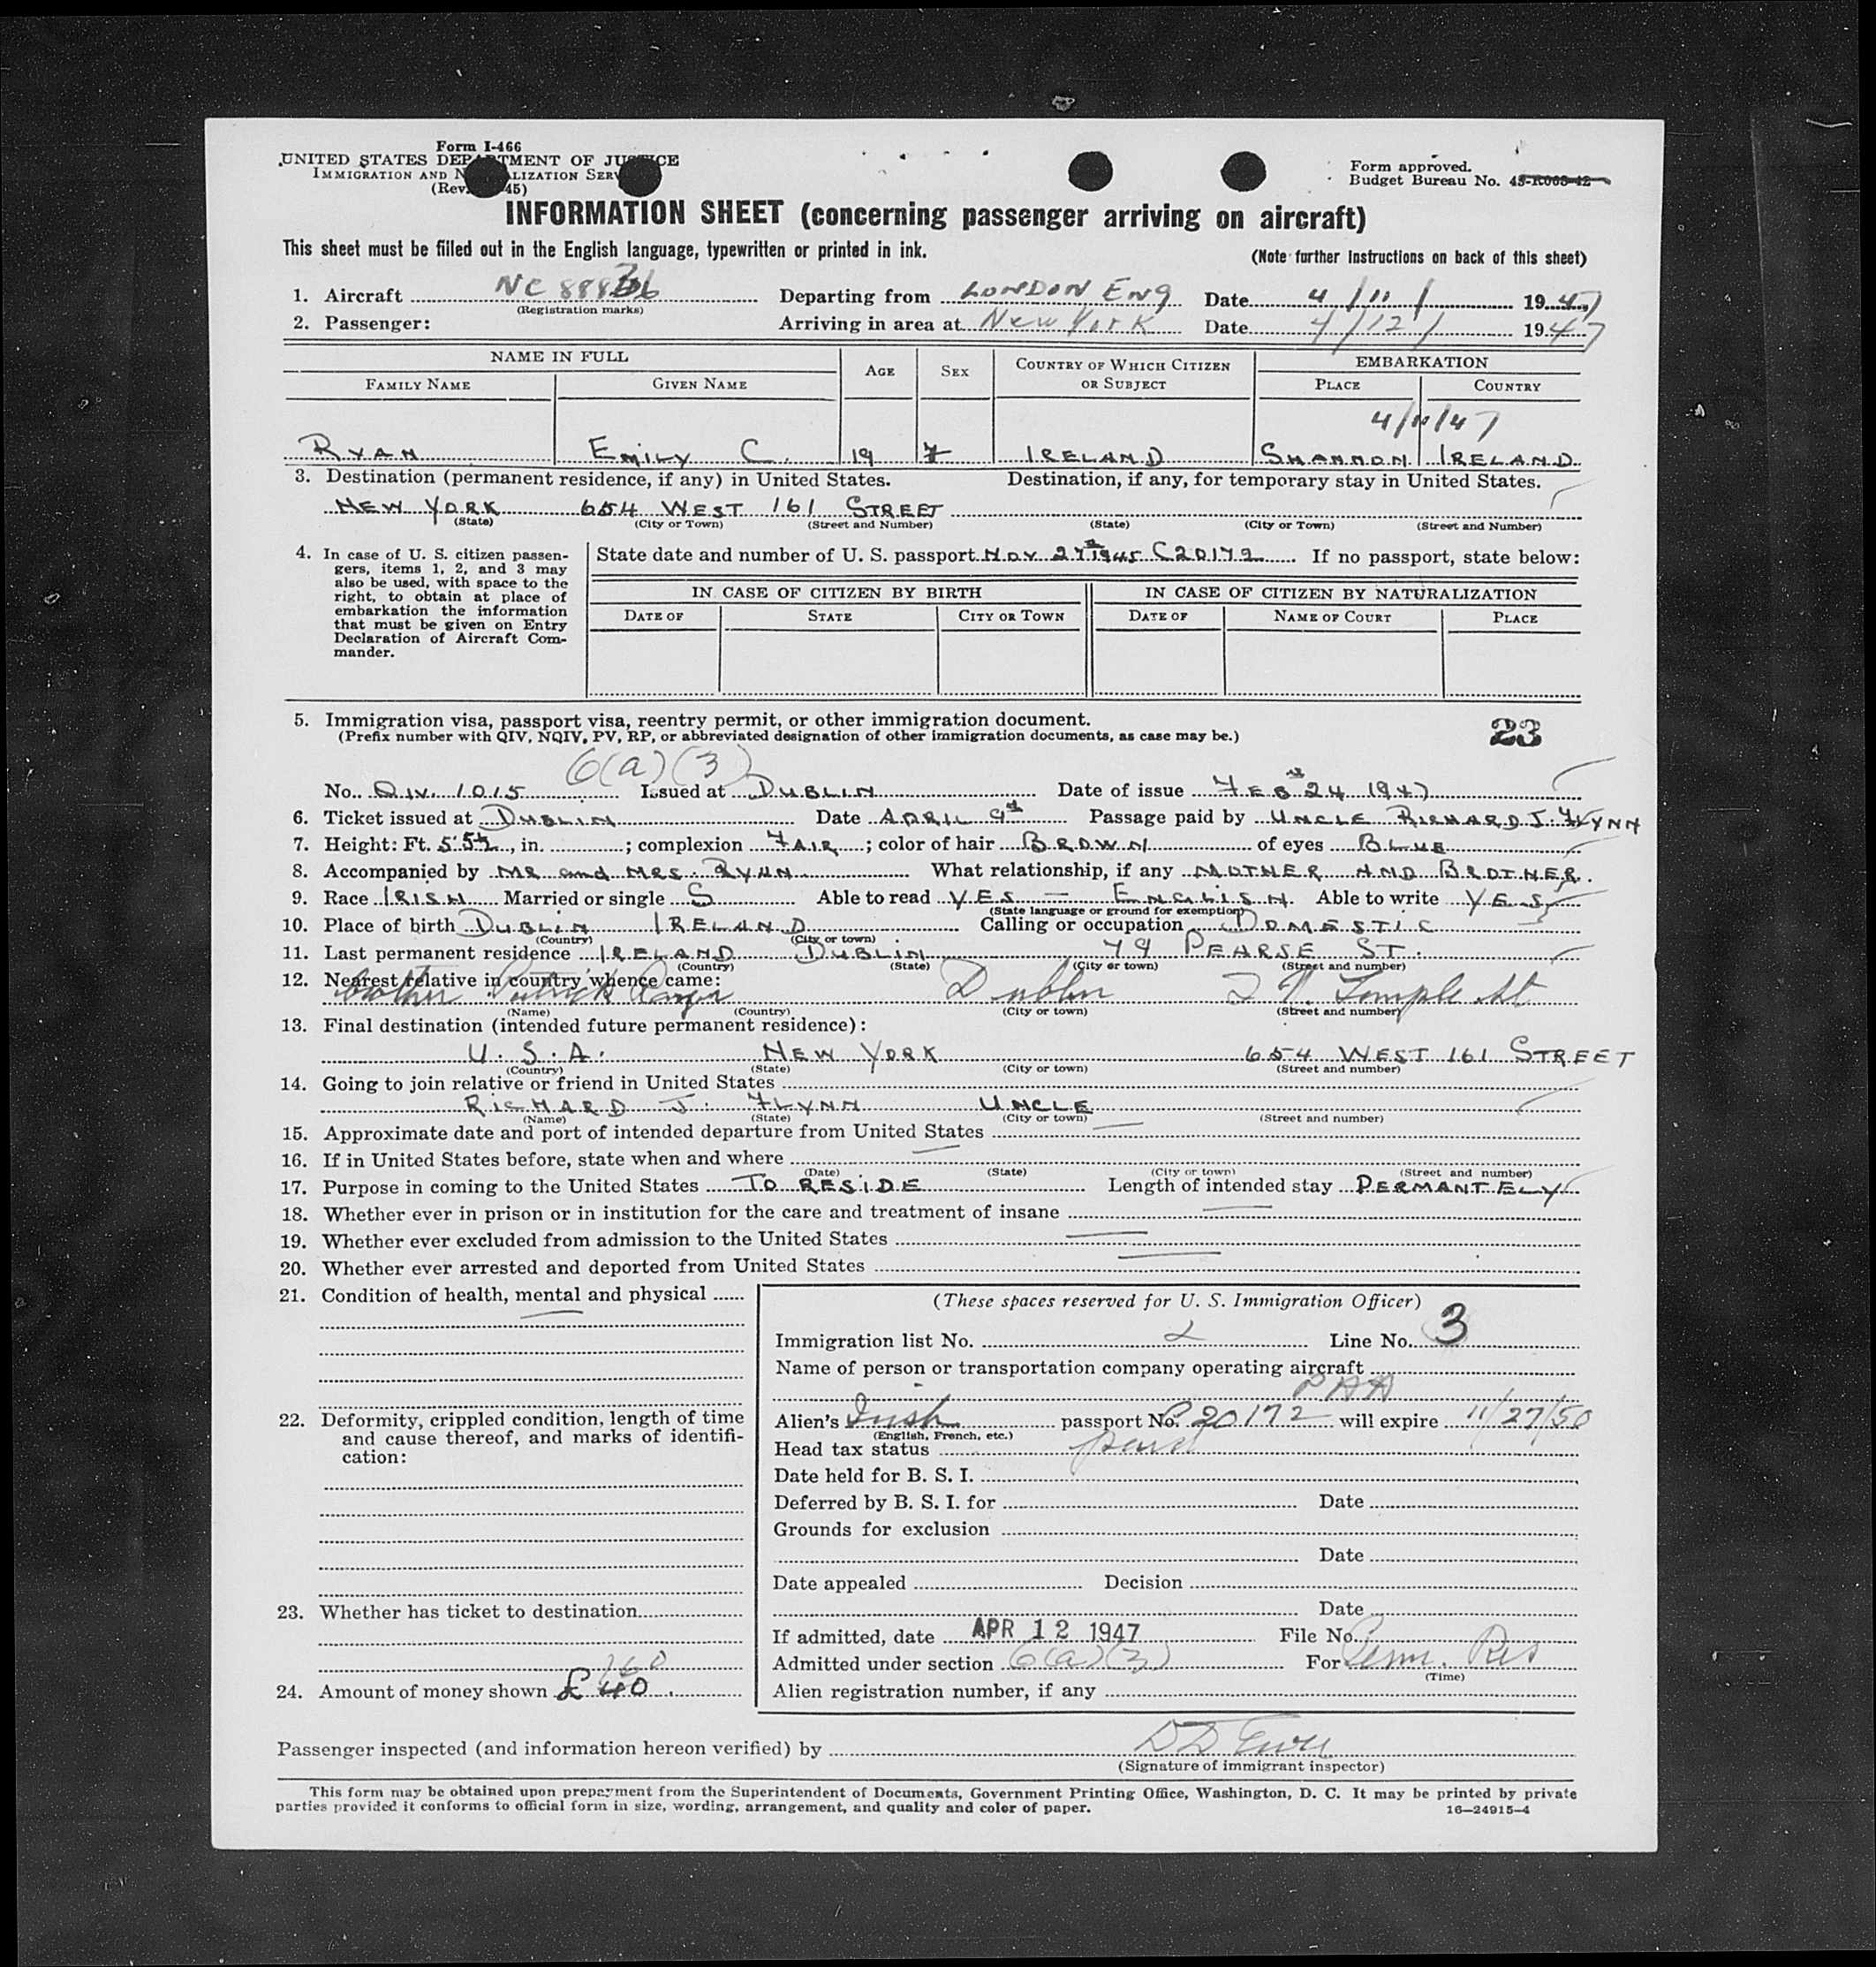 Form I-466
UNITED STATES DEPARTMENT OF JUSTICE
IMMIGRATION AND NATURALIZATION SERVICE
(Rev. 45)
Form approved.
Budget Bureau No. 43-R063-42
INFORMATION SHEET (concerning passenger arriving on aircraft)
This sheet must be filled out in the English language, typewritten or printed in ink.
(Note further instructions on back of this sheet)
1. Aircraft NC 88836 Departing from LONDON ENG Date 4/11/ 1947
(Registration marks)
2. Passenger: Arriving in area at New York Date 4/12/ 1947
NAME IN FULL AGE SEX COUNTRY OF WHICH CITIZEN OR SUBJECT EMBARKATION
FAMILY NAME GIVEN NAME PLACE COUNTRY
4/11/47
RYAN EMILY C. 19 F IRELAND SHANNON IRELAND
3. Destination (permanent residence, if any) in United States. Destination, if any, for temporary stay in United States.
NEW YORK 654 WEST 161 STREET
(State) (City or Town) (Street and Number) (State) (City or Town) (Street and Number)
4. In case of U. S. citizen passengers, items 1, 2, and 3 may also be used, with space to the right, to obtain at place of embarkation the information that must be given on Entry Declaration of Aircraft Commander.
State date and number of U. S. passport NOV 27 1945 C20172 If no passport, state below:
IN CASE OF CITIZEN BY BIRTH IN CASE OF CITIZEN BY NATURALIZATION
DATE OF STATE CITY OR TOWN DATE OF NAME OF COURT PLACE
5. Immigration visa, passport visa, reentry permit, or other immigration document.
(Prefix number with QIV, NQIV, PV, RP, or abbreviated designation of other immigration documents, as case may be.)
23
6(a)(3)
No. QIV. 1015 Issued at DUBLIN Date of issue FEB 24 1947
6. Ticket issued at DUBLIN Date APRIL 9th Passage paid by UNCLE RICHARD J. FLYNN
7. Height: Ft. 5'5½, in. ; complexion FAIR ; color of hair BROWN of eyes BLUE
8. Accompanied by MR and MRS. RYAN What relationship, if any MOTHER AND BROTHER.
9. Race IRISH Married or single S Able to read YES — ENGLISH. Able to write YES
(State language or ground for exemption)
10. Place of birth DUBLIN IRELAND Calling or occupation DOMESTIC
(Country) (City or town)
11. Last permanent residence IRELAND DUBLIN 79 PEARSE ST.
(Country) (State) (City or town) (Street and number)
12. Nearest relative in country whence came:
brother Patrick Dublin Temple St
(Name) (Country) (City or town) (Street and number)
13. Final destination (intended future permanent residence):
U. S. A. NEW YORK 654 WEST 161 STREET
(Country) (State) (City or town) (Street and number)
14. Going to join relative or friend in United States
RICHARD J. FLYNN UNCLE
(Name) (State) (City or town) (Street and number)
15. Approximate date and port of intended departure from United States —
16. If in United States before, state when and where —
(Date) (State) (City or town) (Street and number)
17. Purpose in coming to the United States TO RESIDE Length of intended stay PERMANTELY
18. Whether ever in prison or in institution for the care and treatment of insane —
19. Whether ever excluded from admission to the United States —
20. Whether ever arrested and deported from United States —
21. Condition of health, mental and physical —
22. Deformity, crippled condition, length of time and cause thereof, and marks of identification:
23. Whether has ticket to destination
160
24. Amount of money shown £ 40.
(These spaces reserved for U. S. Immigration Officer)
Immigration list No. 2 Line No. 3
Name of person or transportation company operating aircraft
PAA
Alien's Irish passport No. C20172 will expire 11/27/50
(English, French, etc.)
Head tax status paid
Date held for B. S. I.
Deferred by B. S. I. for Date
Grounds for exclusion
Date
Date appealed Decision
Date
If admitted, date APR 12 1947 File No.
Admitted under section 6(a)(3) For Perm. Res
(Time)
Alien registration number, if any
Passenger inspected (and information hereon verified) by
(Signature of immigrant inspector)
This form may be obtained upon prepayment from the Superintendent of Documents, Government Printing Office, Washington, D. C. It may be printed by private
parties provided it conforms to official form in size, wording, arrangement, and quality and color of paper.
16—24915-4